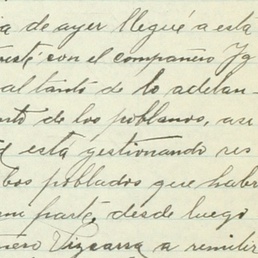 ia de ayer llegué a esta
resté con el compañero Ig
al tanto de lo adelan-
nto de los poblanos, así
d está gestionando res
bos poblados que habr
una parte, desde luego
nero Vizcarra a remitir